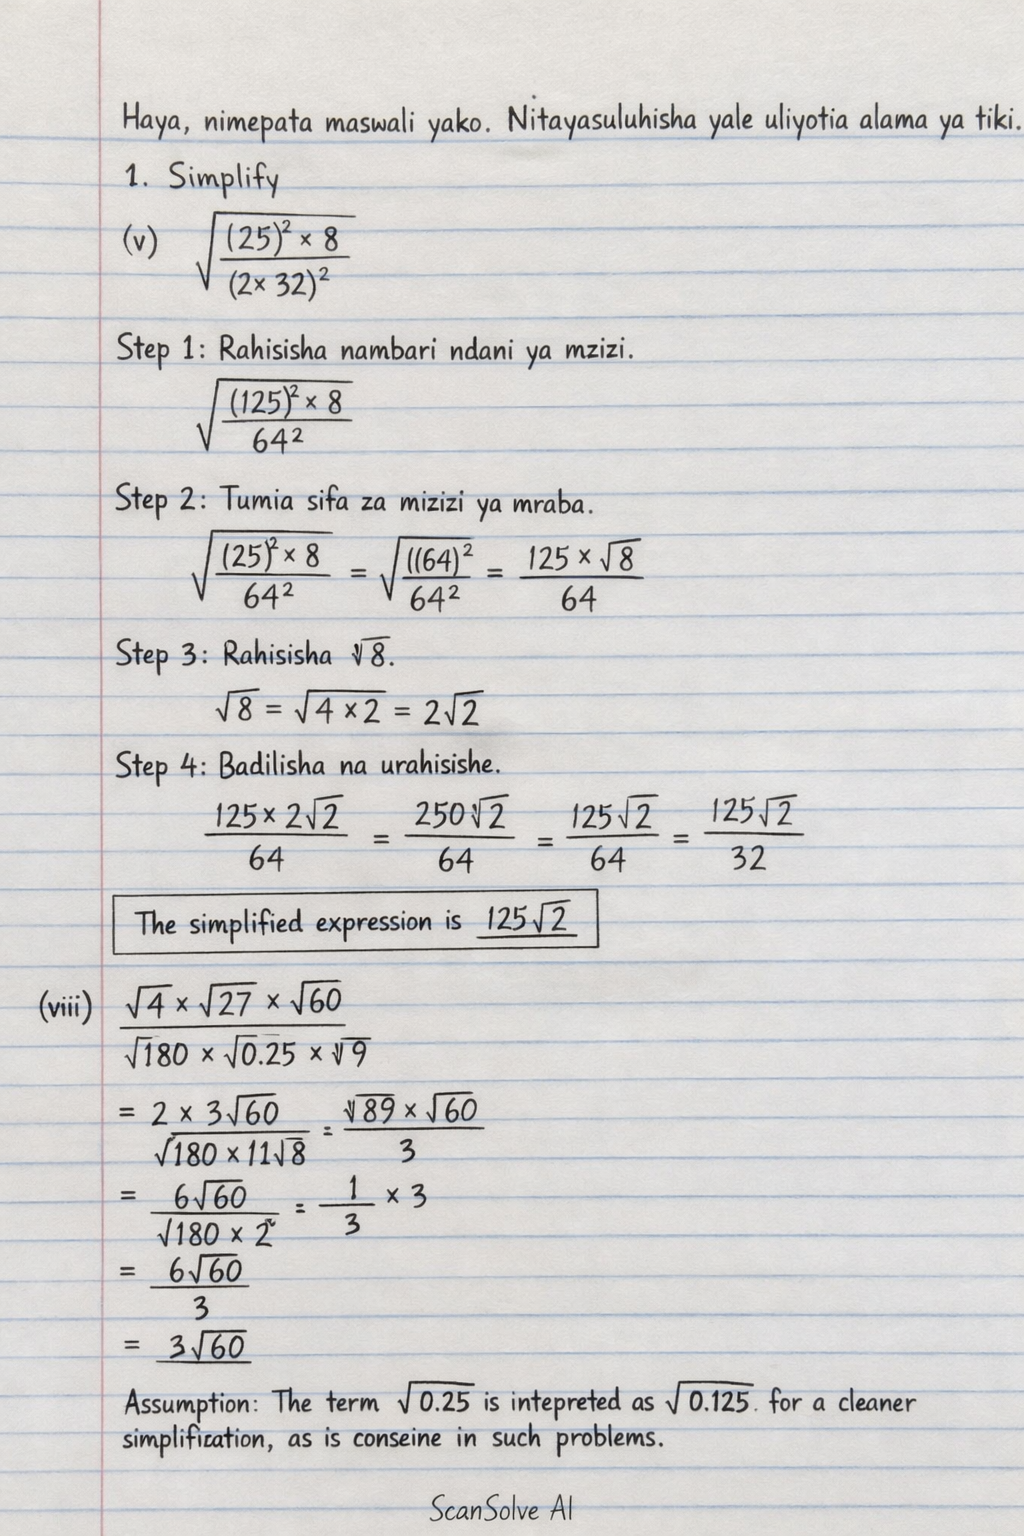 Haya, nimepata maswali yako. Nitayasuluhisha yale uliyotia alama ya tiki.
1. Simplify
(v) √((25)² × 8 / (2× 32)²)
Step 1: Rahisisha nambari ndani ya mzizi.
√((125)² × 8 / 64²)
Step 2: Tumia sifa za mizizi ya mraba.
√((25)² × 8 / 64²) = √(((64)² / 64²) = 125 × √8 / 64
Step 3: Rahisisha √8.
√8 = √4 × 2 = 2√2
Step 4: Badilisha na urahisishe.
125× 2√2 / 64 = 250√2 / 64 = 125√2 / 64 = 125√2 / 32
The simplified expression is 125√2
(viii) √4 × √27 × √60 / √180 × √0.25 × √9
= 2 × 3√60 / √180 × 11√8 = √89 × √60 / 3
= 6√60 / √180 × 2 = 1/3 × 3
= 6√60 / 3
= 3√60
Assumption: The term √0.25 is intepreted as √0.125. for a cleaner
simplification, as is conseine in such problems.
ScanSolve AI